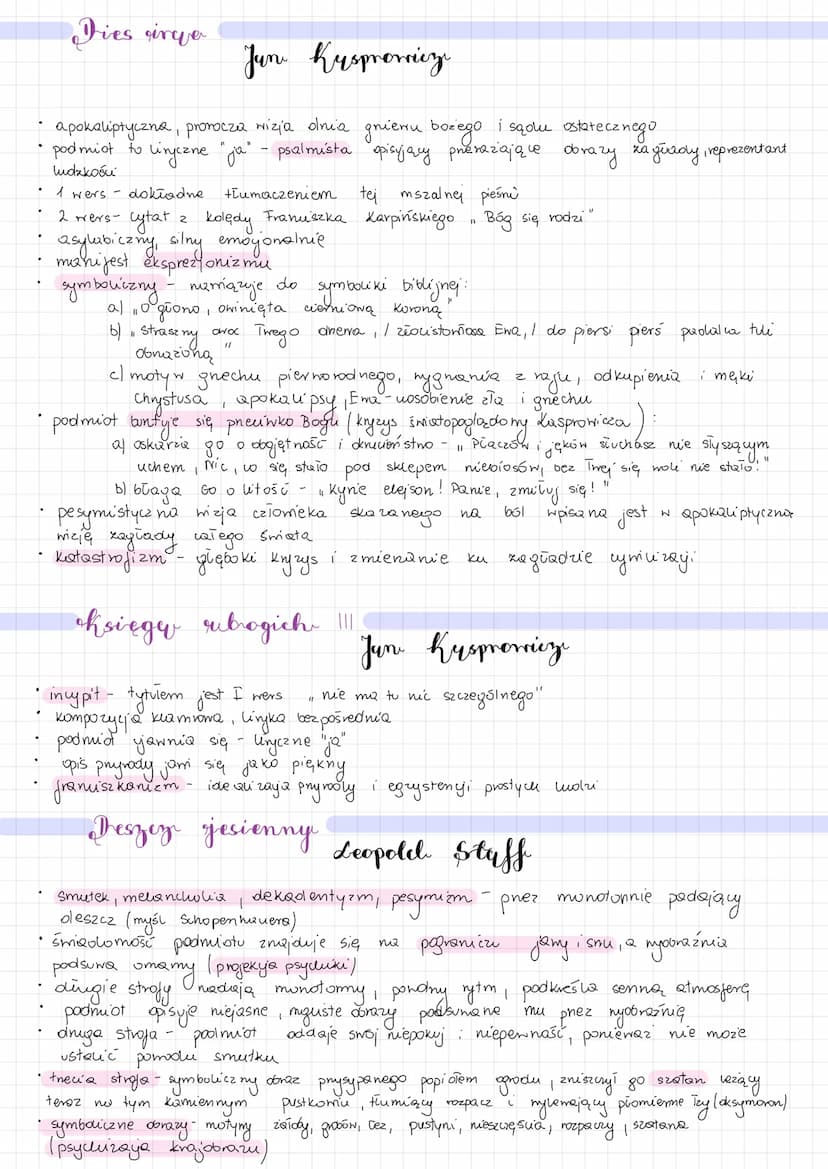 Dies irae
Jan Kasprowicz
• apokaliptyczna, prorocza wizja dnia gniewu bożego i sądu ostatecznego
• podmiot to liryczne "ja" - psalmista opisyjący przerażające obrazy zagłady, reprezentant
ludzkości
• 1 wers - dokładne tłumaczeniem tej mszalnej pieśni
• 2 wers - cytat z kolędy Franciszka Karpińskiego „Bóg się rodzi"
• asylabiczny, silny emocjonalnie
• manifest ekspresjonizmu
• symboliczny - nawiązuje do symboliki biblijnej:
a) „O głowo, owinięta cierniową koroną"
b) „Straszny owoc Twego drzewa, / złocistowłosa Ewa, / do piersi pierś padalca tuli
obnażoną"
c) motyw grzechu pierworodnego, wygnania z raju, odkupienia i męki
Chrystusa, apokalipsy, Ewa - uosobienie zła i grzechu
• podmiot buntuje się przeciwko Bogu (kryzys światopoglądowy Kasprowicza):
a) oskarża go o obojętność i okrucieństwo - „Płaczów i jęków słuchasz nie słyszącym
uchem, Nic, co się stało pod sklepem niebiosów, bez Twej się woli nie stało!"
b) błaga Go o litość - „Kyrie elejson! Panie, zmiłuj się!"
• pesymistyczna wizja człowieka skazanego na ból wpisana jest w apokaliptyczną
wizję zagłady całego świata
• katastrofizm - głęboki kryzys i zmierzanie ku zagładzie cywilizacji
Księga ubogich III
Jan Kasprowicz
• incypit - tytułem jest I wers „nie ma tu nic szczególnego"
• kompozycja klamrowa, liryka bezpośrednia
• podmiot ujawnia się - liryczne "ja"
• opis przyrody jawi się jako piękny
• franciszkanizm - idealizacja przyrody i egzystencji prostych ludzi
Deszcz jesienny
Leopold Staff
• smutek, melancholia, dekadentyzm, pesymizm - przez monotonnie padający
deszcz (myśl Schopenhauera)
• świadomość podmiotu znajduje się na pograniczu jawy i snu, a wyobraźnia
podsuwa omamy (projekcja psychiki)
• długie strofy nadają monotonny, powolny rytm, podkreśla senną atmosferę
• podmiot opisuje niejasne, mgliste obrazy podsuwane mu przez wyobraźnię
• druga strofa - podmiot oddaje swój niepokój i niepewność, ponieważ nie może
ustalić powodu smutku
• trzecia strofa - symboliczny obraz przysypanego popiołem ogrodu, zniszczył go szatan leżący
teraz na tym kamiennym pustkowiu, tłumiący rozpacz i wylewający płomienne łzy (oksymoron)
• symboliczne obrazy - motywy żałoby, grobów, łez, pustyni, nieszczęścia, rozpaczy, szatana
(psychizacja krajobrazu)